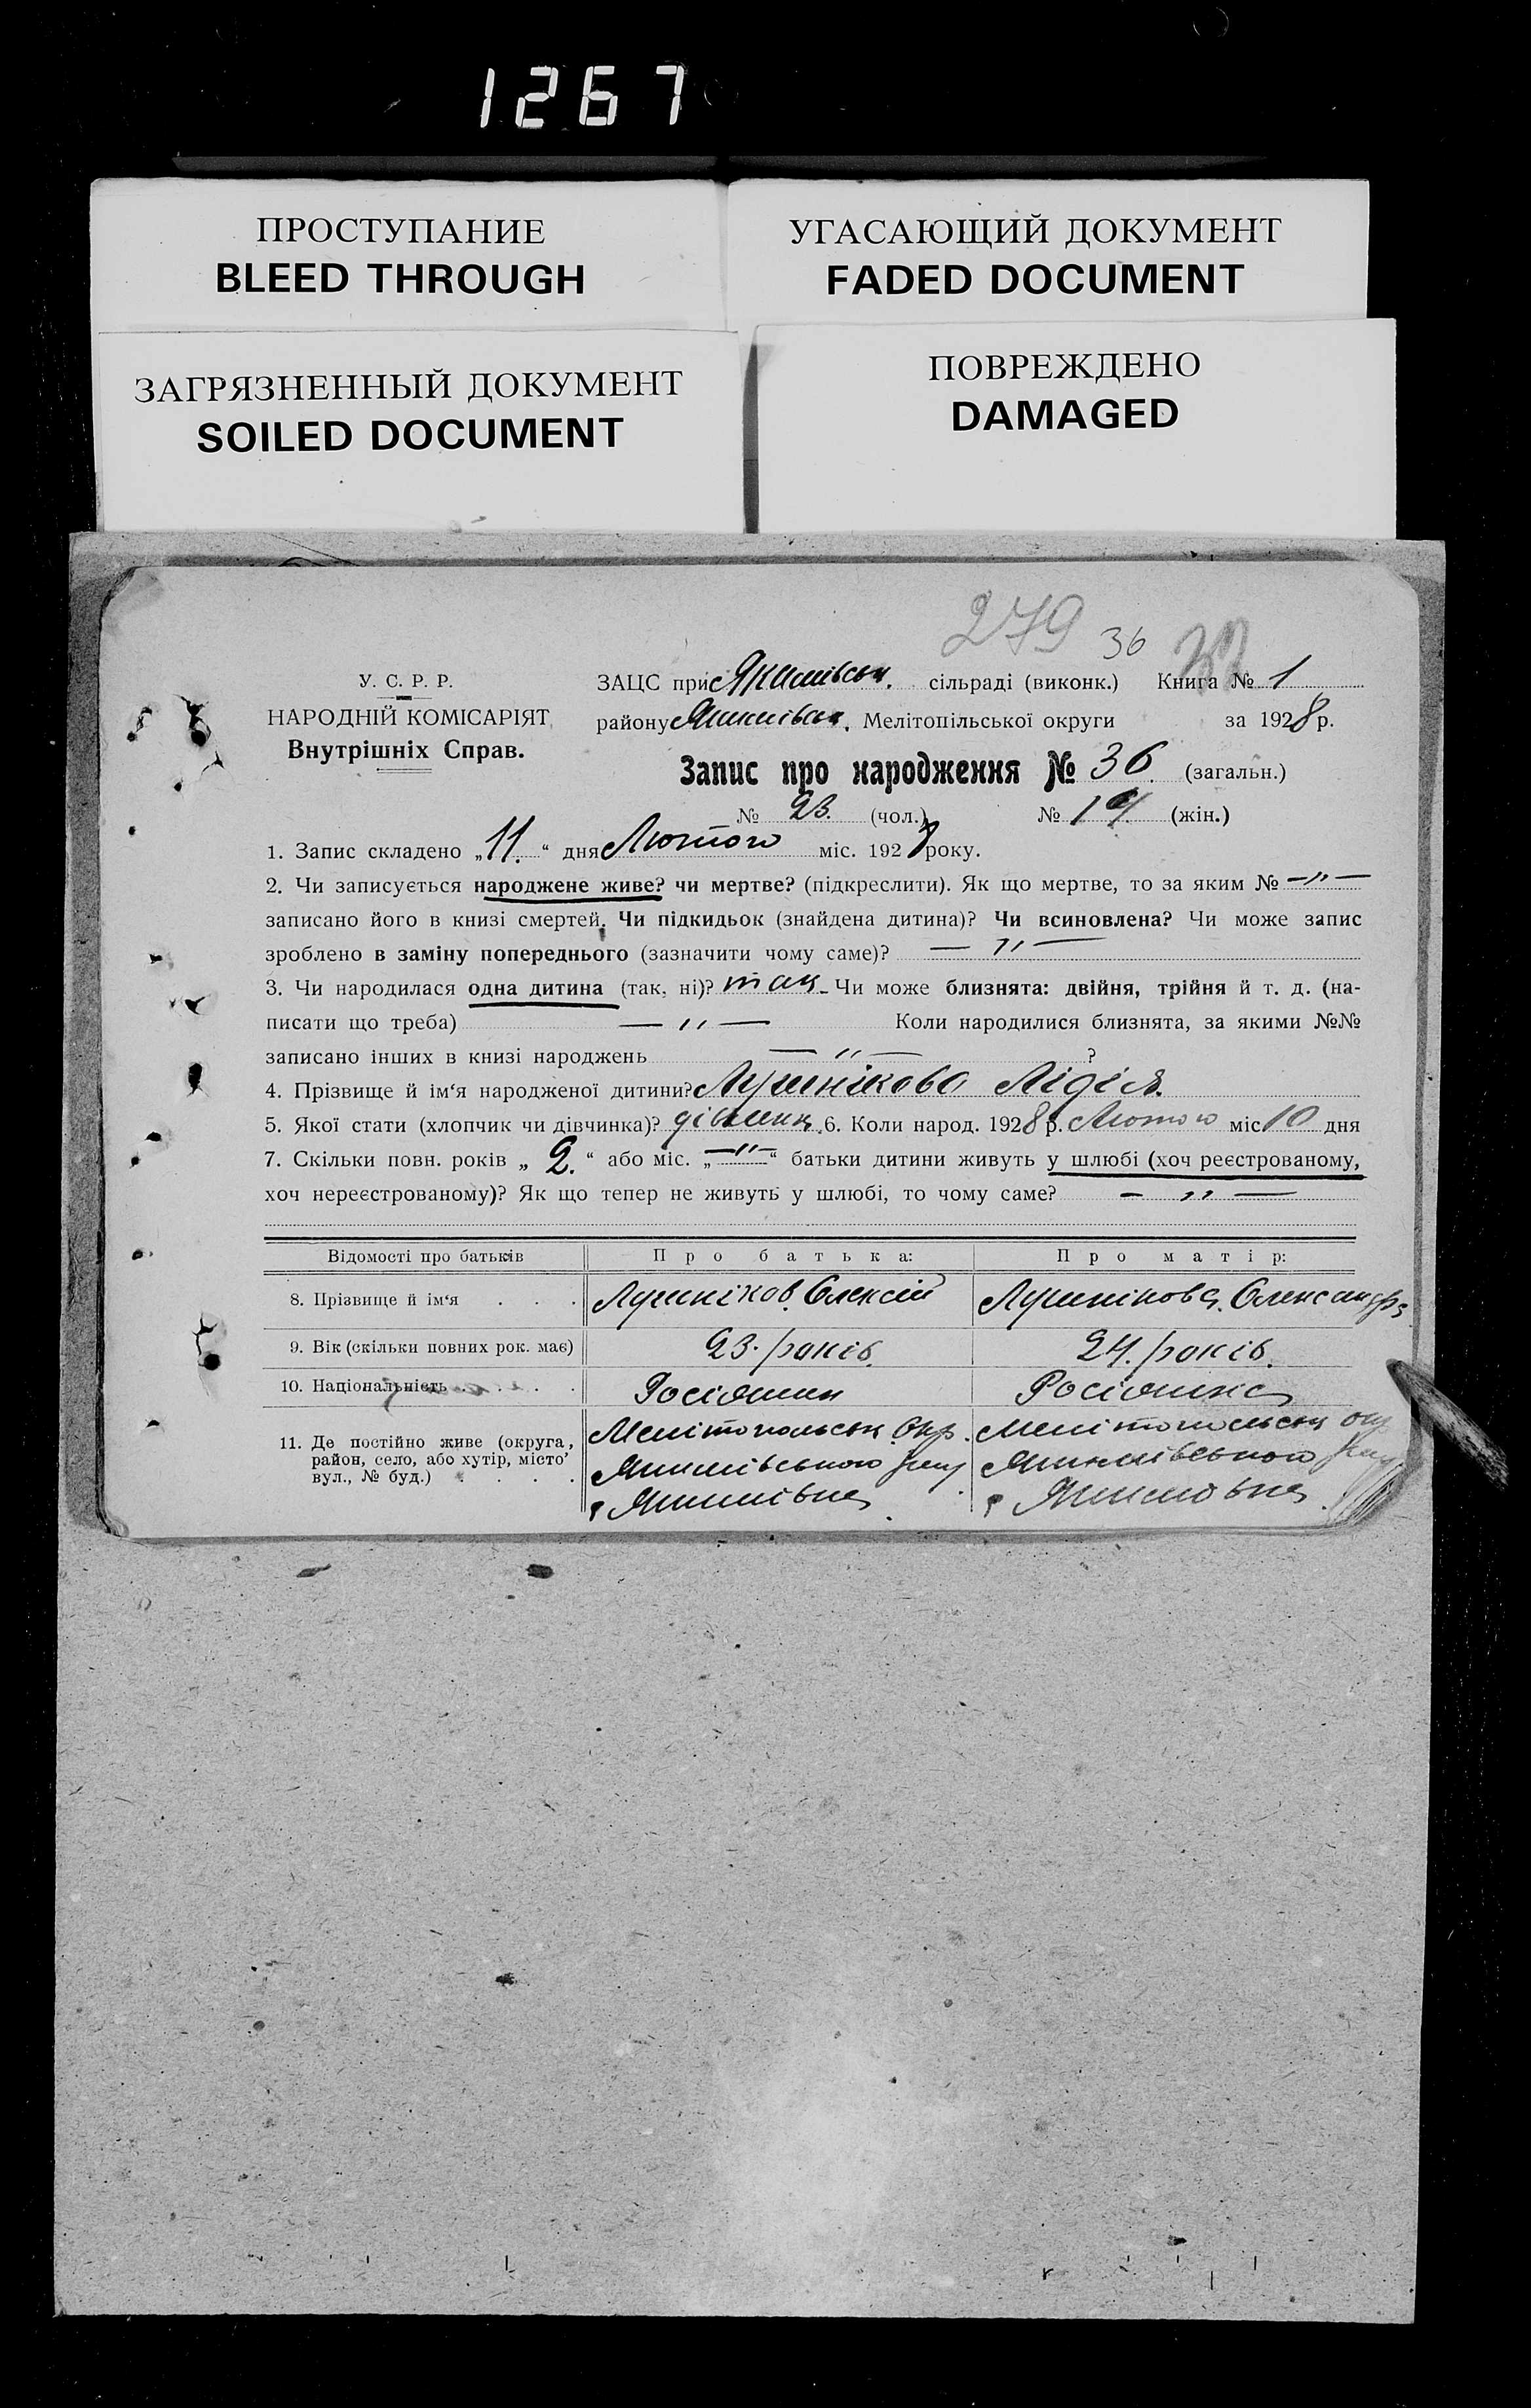 1267
ПРОСТУПАНИЕ
BLEED THROUGH
УГАСАЮЩИЙ ДОКУМЕНТ
FADED DOCUMENT
ЗАГРЯЗНЕННЫЙ ДОКУМЕНТ
SOILED DOCUMENT
ПОВРЕЖДЕНО
DAMAGED
279 36
У. С. Р. Р.
НАРОДНІЙ КОМІСАРІЯТ
Внутрішніх Справ.
ЗАЦС при Якимівськ. сільраді (виконк.) Книга № 1
району Якимівськ. Мелітопільської округи за 1928 р.
Запис про народження № 36. (загальн.)
№ 23. (чол.) № 14. (жін.)
1. Запис складено „11.“ дня Лютого міс. 1928 року.
2. Чи записується народжене живе? чи мертве? (підкреслити). Як що мертве, то за яким № — " —
записано його в книзі смертей. Чи підкидьок (знайдена дитина)? Чи всиновлена? Чи може запис
зроблено в заміну попереднього (зазначити чому саме)? — " —
3. Чи народилася одна дитина (так, ні)? так Чи може близнята: двійня, трійня й т. д. (на-
писати що треба) — " — Коли народилися близнята, за якими №№
записано інших в книзі народжень — " — ?
4. Прізвище й ім‘я народженої дитини? Лушнікова Лідія.
5. Якої стати (хлопчик чи дівчинка)? 6. Коли народ. 1928 р. Лютого міс 10 дня
7. Скільки повн. років „2.“ або міс. „— " —“ батьки дитини живуть у шлюбі (хоч реєстрованому,
хоч нереєстрованому)? Як що тепер не живуть у шлюбі, то чому саме? — " —
Відомості про батьків
Про батька:
Про матір:
8. Прізвище й ім‘я . . .
Лушніков Олексій
Лушнікова Олександра
9. Вік (скільки повних рок. має)
23. років.
24. років.
10. Національність . . . .
Росіянин
Росіянка
11. Де постійно живе (округа,
район, село, або хутір, місто
вул., № буд.) . . . .
Мелітопольськ. Окр.
Якимівського
Якимівка
Мелітопольськ окр
Якимівського
Якимовка